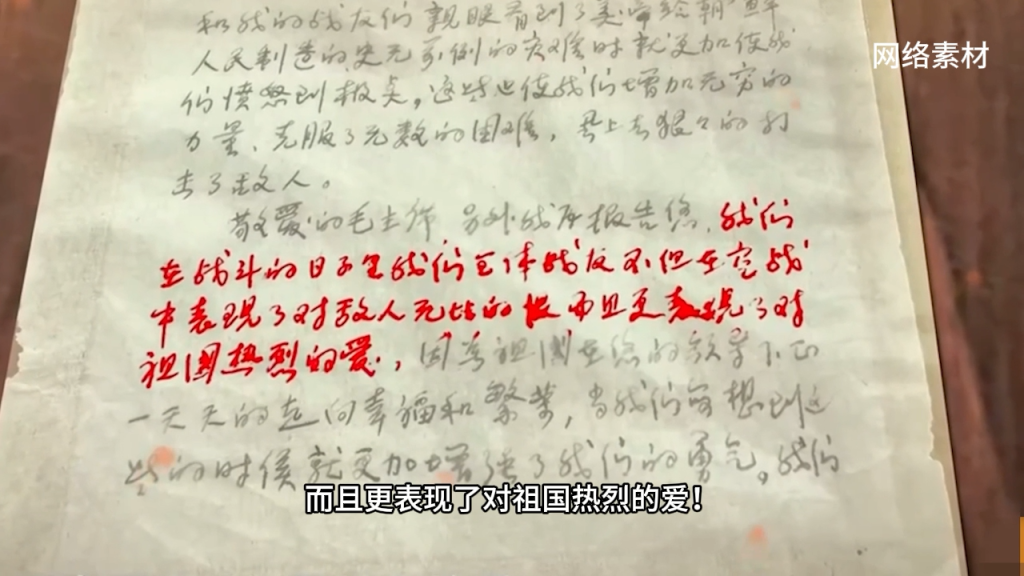 和我的战友们亲眼看到了美帝给朝鲜
网络素材
人民制造的史无前例的灾难时就更加使我
们愤怒到极点。这些也使我们增加无穷的
力量、克服了无数的困难,马上去狠々的打
击了敌人。
敬爱的毛主席 另外我再报告您,我们
在战斗的日子里我们全体战友不但在空战
中表现了对敌人无比的恨而且更表现了对
祖国热烈的爱,因为祖国在您的领导下正
一天天的走向幸福和繁荣,当我们每想到这
些的时候就更加增强了我们的勇气。我们
而且更表现了对祖国热烈的爱!